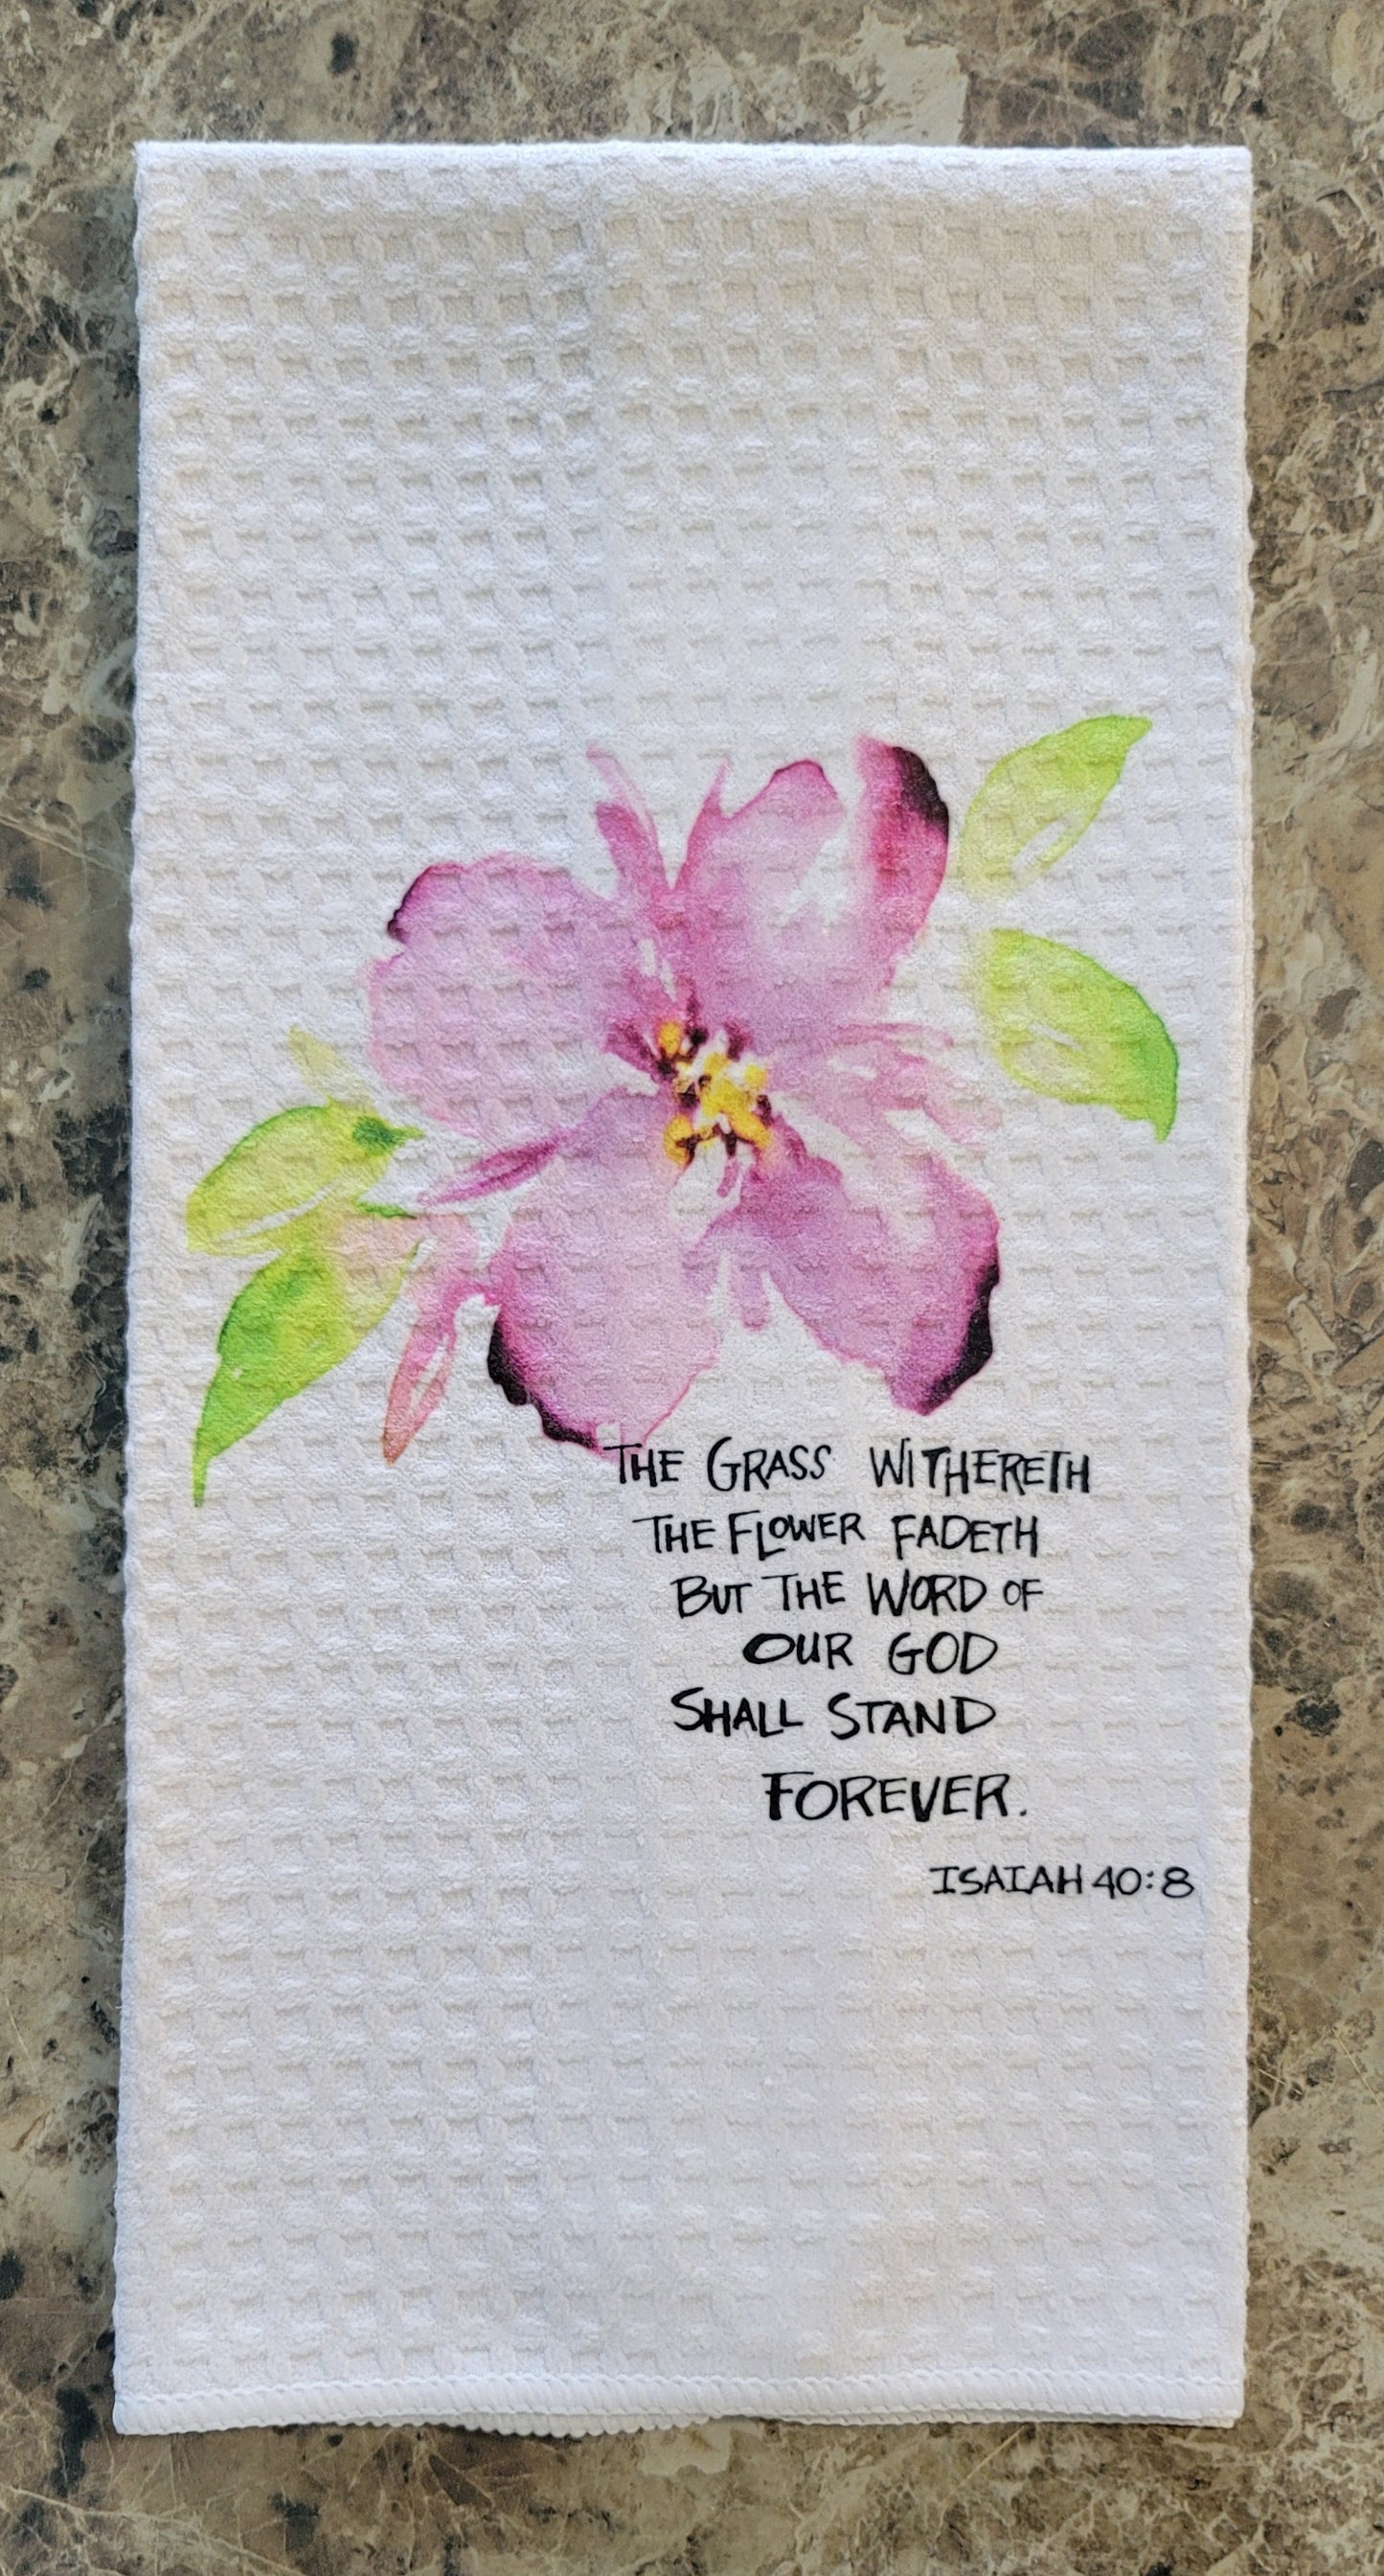 THE GRASS WITHERETH
THE FLOWER FADETH
BUT THE WORD OF
OUR GOD
SHALL STAND
FOREVER.
ISAIAH 40:8